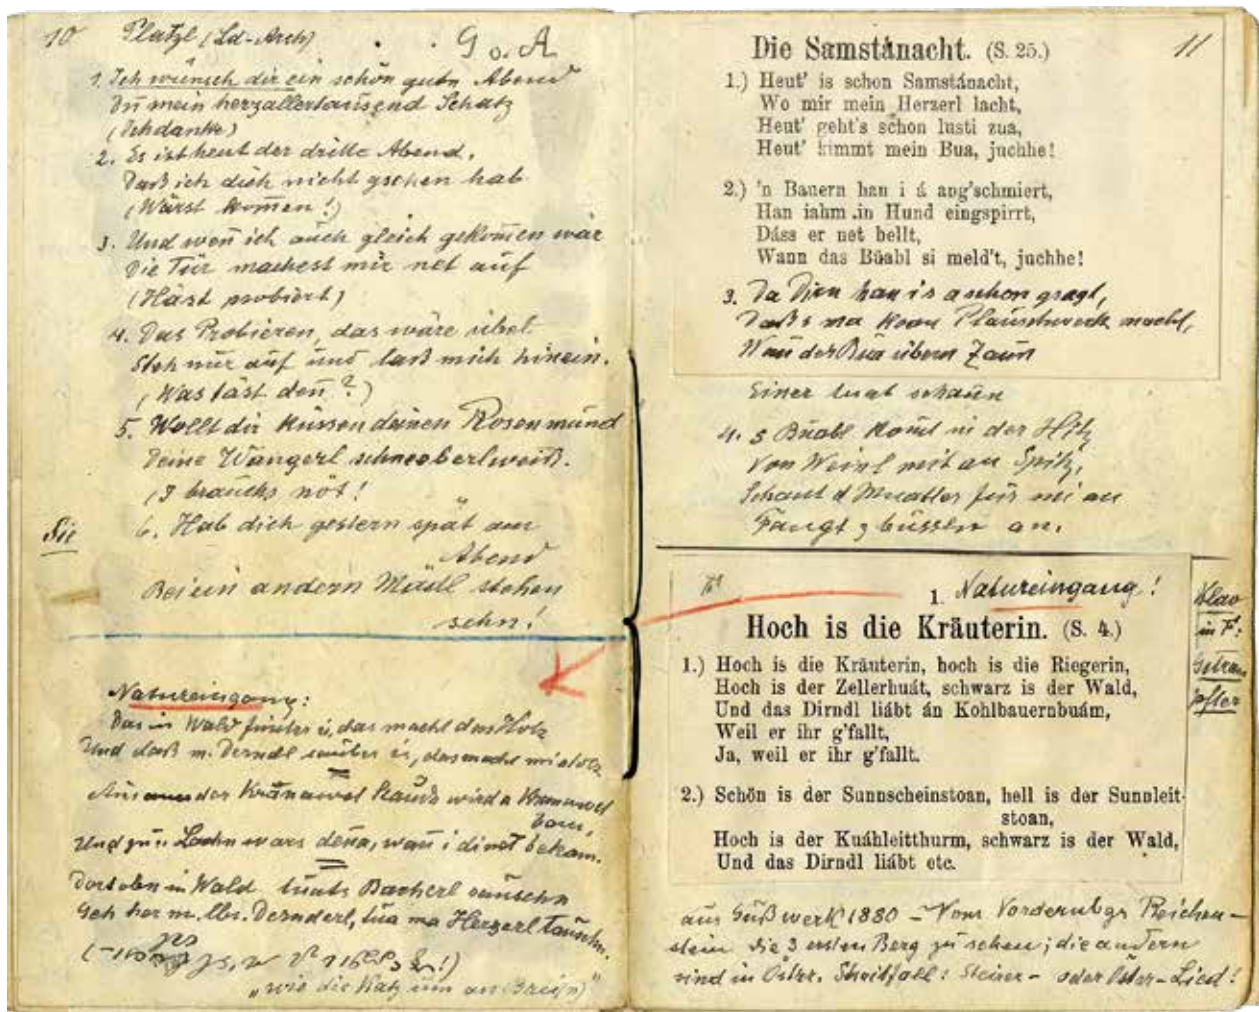 10 Platzl (Ld-Arch) G. o. A
1. Ich wünsch dir ein schön guten Abend
Du mein herzallertausend Schatz
(Ich danke)
2. Es ist heut der dritte Abend,
Daß ich dich nicht gsehen hab
(Wärst kom̅en!)
3. Und wen̅ ich auch gleich gekom̅en wär
Die Tür machest mir net auf
(Häst probiert)
4. Das Probieren, das wäre übel
Steh nur auf und laß mich hinein.
(Was tást den̅?)
5. Wollt dir küssen deinen Rosenmund
Deine Wangerl schneeberlweiß.
(I brauchs nöt!
Sie 6. Hab dich gestern spät am
Abend
Bei ein andern Mädl stehen
sehn!
Natureingang:
Das in Wald finster is, das macht das Holz
Und daß m. Derndl sauber is, das macht mi stolz
Aus der Kranawet Staudn wird a Kranawet
bam,
Und wars denn, wan̅ i di net bekam.
Dort obn in Wald tuats Bacherl rauschn
Geh her m. lbs. Dernderl, tua ma Herzerl tauschn.
„wie die Katz um an Brei(n)"
11
Die Samstánacht. (S. 25.)
1.) Heut' is schon Samstánacht,
Wo mir mein Herzerl lacht,
Heut' geht's schon lusti zua,
Heut' kimmt mein Bua, juchhe!
2.) 'n Bauern han i á ang'schmiert,
Han iahm in Hund eingspirrt,
Dáss er net bellt,
Wann das Büabl si meld't, juchhe!
3. Da Dirn han is a schon gsagt,
Daß s ma koan Plauschwerk macht,
Wan̅ der Bua übern Zaun
Einer tuat schaun
4. s Büabl kom̅t in der Hitz
Von Weinl mit an Spitz,
Schaut d Muatter für mi an
Fangt z büssln an.
1. Natureingang!
Hoch is die Kräuterin. (S. 4.)
1.) Hoch is die Kräuterin, hoch is die Riegerin,
Hoch is der Zellerhuát, schwarz is der Wald,
Und das Dirndl liábt án Kohlbauernbuám,
Weil er ihr g'fallt,
Ja, weil er ihr g'fallt.
2.) Schön is der Sunnscheinstoan, hell is der Sunnleit-
stoan,
Hoch is der Kuáhleitthurm, schwarz is der Wald,
Und das Dirndl liábt etc.
Klav
in F:
aus Gußwerk 1880 – Vom Vordernbgr Reichen-
stein die 3 ersten Berg zu sehen; die andern
sind in Östrr. Streitfall: Steirer- oder Öster-Lied!